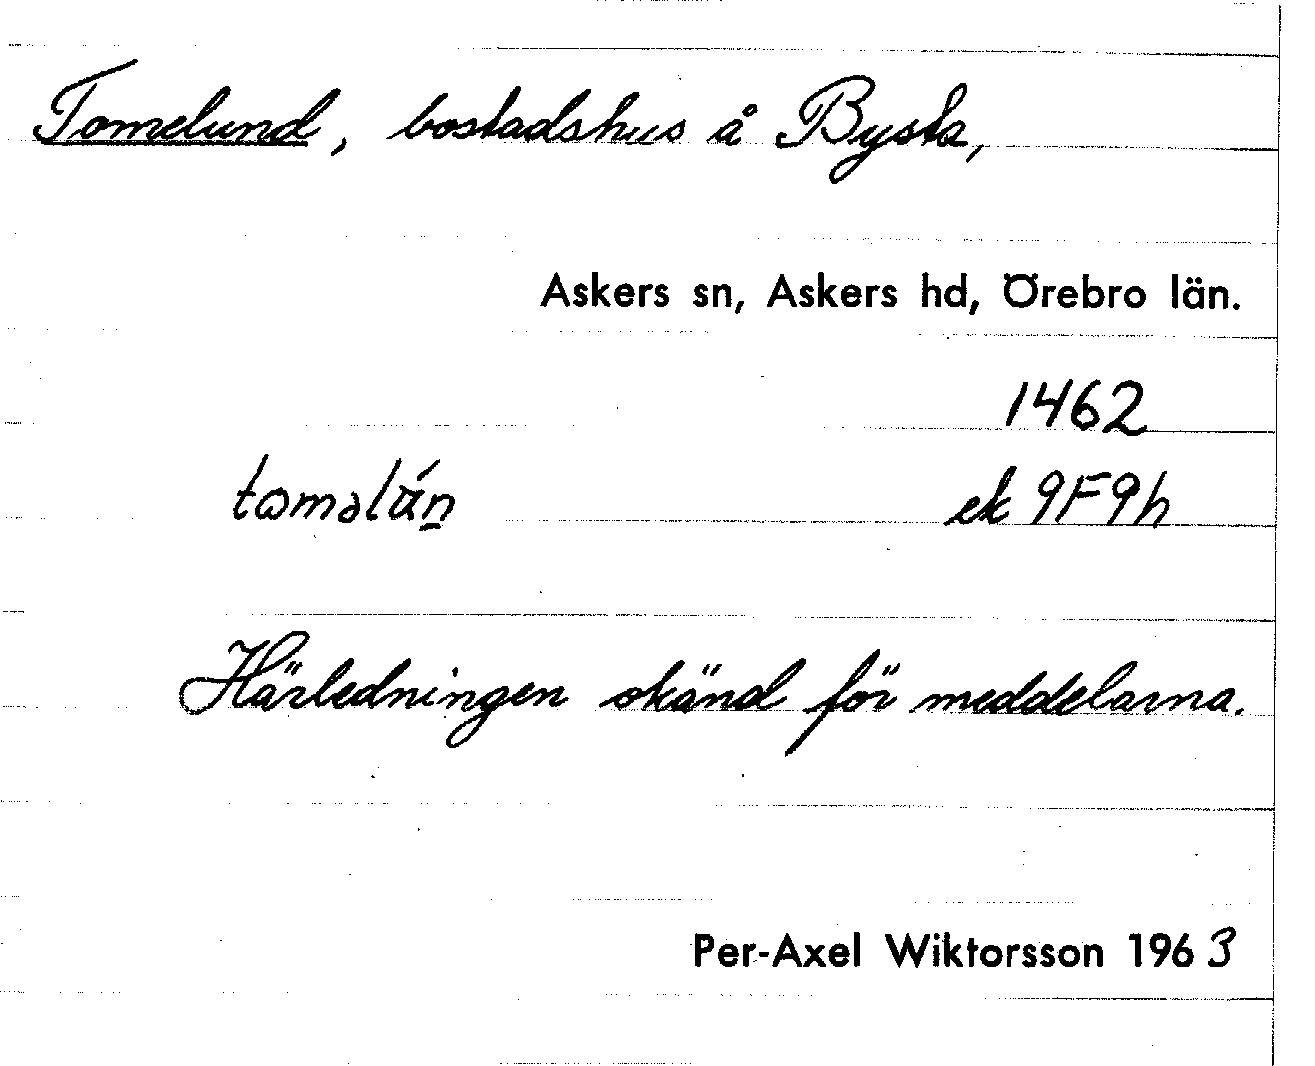 Tomelund, bostadshus å Bysta,
Askers sn, Askers hd, Örebro län.
1462
ek 9F9h
Härledningen okänd för meddelarna.
Per-Axel Wiktorsson 1963